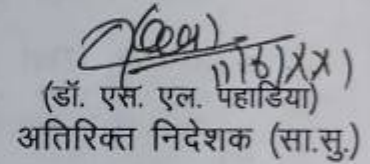 (डॉ. एस. एल. पहाडिया)
अतिरिक्त निदेशक (सा.सु.)